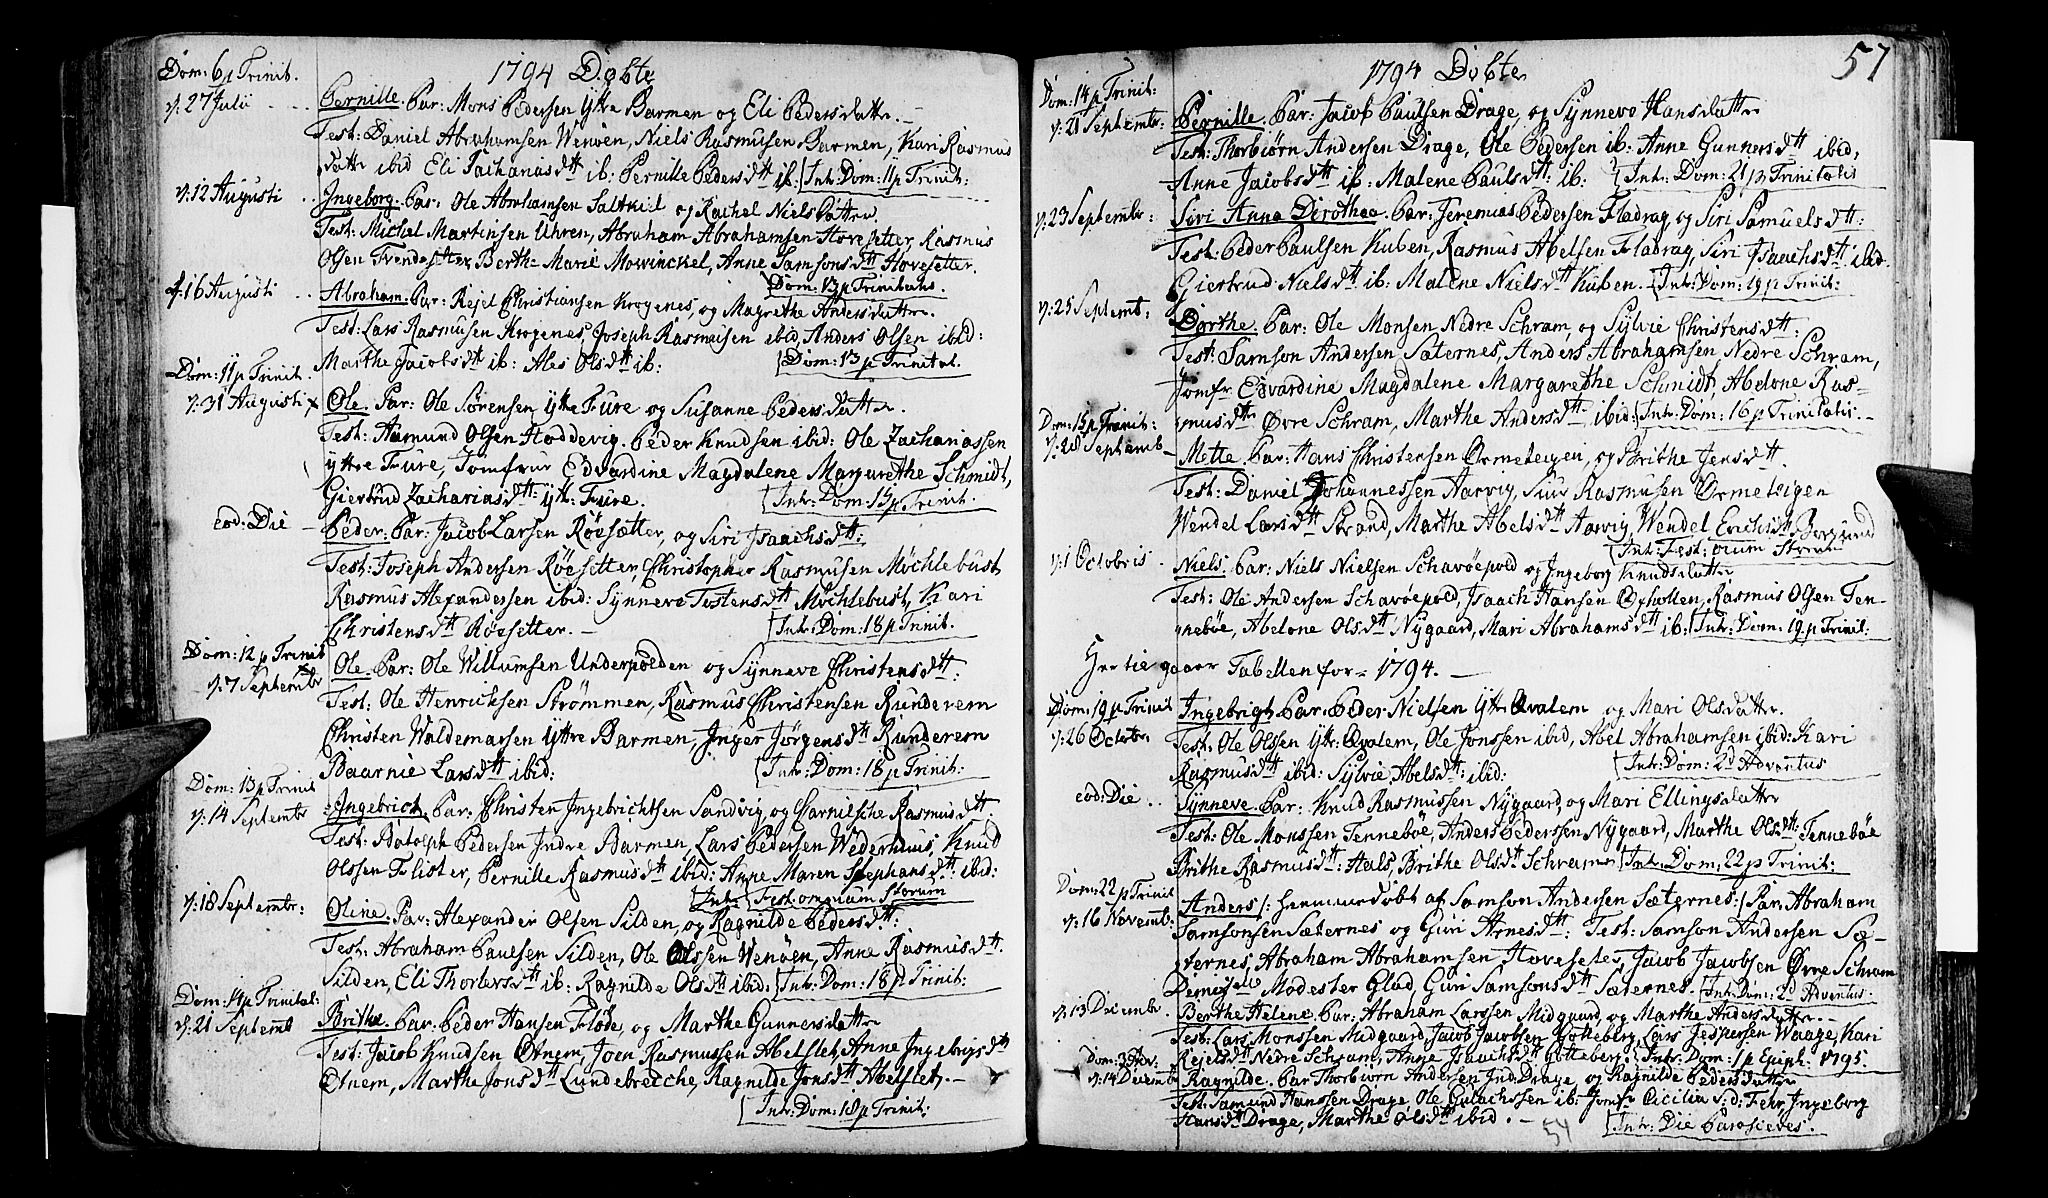 1794 Døbte
Dom: 6 p Trinit.
d: 27 Julii Pernille. Par: Mons Pedersen Yttre Barmen og Eli Pedersdattr.
Test: Daniel Abrahamsen Wenøen, Niels Rasmusen Barmen, Kari Rasmus
dattr ibid Eli Zachariasdtt ib: Pernille Pedersdtt ib: Intr: Dom: 11 p Trinit:
d: 12 Augusti Ingeborg. Par: Ole Abrahamsen Saltkiel og Rachel Nielsdattr.
Test: Michel Martinsen Uhren, Abraham Abrahamsen Hovesetter, Rasmus
Olsen Trendesetter, Berthe Marie Mowinckel, Anne Samsonsdtt Hovesetter.
Dom: 13 p Trinitatis.
d: 16 Augusti Abraham. Par: Rejel Christiansen Krogenes, og Magrethe Andersdattr.
Test: Lars Rasmusen Krogenes, Joseph Rasmusen ibid, Anders Olsen ibid:
Marthe Jacobsdtt ib: Ales Olsdtt ib: Dom: 13 p Trinitat.
Dom: 11 p Trinit.
d: 31 Augusti x Ole. Par: Ole Sørensen Yttre Fure og Susanne Pedersdattr.
Test: Aamund Olsen Hoddevig. Peder Knudsen ibid: Ole Zachariassen
yttre Fure, Jomfrue Edvardine Magdalene Margarethe Schmidt,
Giertrud Zachariasdtt: ytt: Fure. Intr: Dom: 15 p Trinit.
eod: Die Peder. Par: Jacob Larsen Røesætter, og Siri Isaachsdtt:
Test: Joseph Andersen Røesetter, Christopher Rasmusen Mychlebust
Rasmus Alexandersen ibid: Synneve Tostensdtt Mychlebust, Kari
Christensdtt Røesetter. Intr: Dom: 18 p Trinit.
Dom: 12 p Trinit
d: 7 Septembr Ole. Par: Ole Willumsen Underpolden og Synneve Christensdtt:
Test: Ole Henricksen Strømmen, Rasmus Christensen Runderem
Christen Waldemarsen Yttre Barmen, Inger Jørgensdtt Runderem
Baarnie Larsdtt ibid: Intr: Dom: 18 p Trinit:
Dom: 13 p Trinit
d: 14 Septembr Ingebrict. Par: Christen Ingebrichtsen Sandvig, og Carnilsche Rasmusdtt.
Test: Botolph Pedersen Indre Barmen, Lars Pedersen Wederhuus, Knud
Olssen Flister, Pernille Rasmusdtt ibid: Anne Maren Stephansdtt: ibid:
Intr: Fest: omnium Storum
d: 18 Septembr: Oline. Par: Alexander Olsen Silden, og Ragnilde Pedersdtt:
Test: Abraham Paulsen Silden, Ole Olssen Wenøen, Anne Rasmusdtt.
Silden, Eli Thorlersdtt ib: Ragnilde Olsdtt ibid. Intr: Dom: 18 p Trinit:
Dom: 14 p Trinitat:
d: 21 Septemb Brithe. Par. Peder Hansen Fløde, og Marthe Gunnersdattr
Test: Jacob Knudsen Otnem, Joen Rasmussen Abelslet, Anne Ingebrigsdtt
Otnem, Marthe Jonsdtt Lundebrecche, Ragnilde Jonsdtt Abelslet.
Intr: Dom: 18 p Trinit:
57
1794 Døbte
Dom: 14 p Trinit:
d: 21 Septembr: Pernille. Par: Jacob Paulsen Drage, og Synnevo Hansdattr
Test: Thorbiørn Andersen Drage, Ole Pedersen ib: Anne Gunnersdtt ibid,
Anne Jacobsdtt ib: Malene Paulsdtt: ib: Intr: Dom: 21 p Trinitatis
d: 23 Septembr: Siri Anna Dorothea. Par: Jeremias Pedersen Fladrag, og Siri Samuelsdtt:
Test: Peder Paulsen Kuben, Rasmus Abelsen Fladrag, Siri Isaachsdtt: ibid.
Giertrud Nielsdtt ib: Malene Nielsdtt Kuben. Intr: Dom: 19 p Trinit:
d: 25 Septemt: Dorthe. Par: Ole Monsen Nedre Schram, og Sylvie Christensdtt:
Test: Samson Andersen Sæternes, Anders Abrahamsen Nedre Schram,
Jomfr Edvardine Magdalene Margarethe Schmidt, Abelone Ras-
musdtt Øvre Schram, Marthe Andersdtt ibid: Intr: Dom: 16 p Trinitatis.
Dom: 15 p Trinit:
d: 28 Septemb Mette. Par: Hans Christensen Ormeteigen, og Brithe Jensdtt.
Test: Daniel Johannessen Aarvig, Siur Rasmusen Ormeteigen
Wendel Larsdtt Strand, Marthe Abelsdtt Aarvig, Wendel Erichsdtt Borgund
Intr: Fest: omnium Storum
d: 1 Octobris Niels. Par: Niels Nielsen Schavøepold og Ingeborg Knudsdattr
Test: Ole Andersen Schavøepold, Isaach Hansen Ophollen, Rasmus Olsen Ten-
nebøe, Abelone Olsdtt Nygaard, Mari Abrahamsdtt ib: Intr: Dom: 19 p Trinit:
Her tie gaaer Tabellen for 1794.
Dom: 19 p Trinit
d: 26 Octobr Ingebrigt. Par. Peder Nielsen Yttr Qvalem og Mari Olsdattr.
Test: Ole Olssen Yttr: Qvalem, Ole Jonssen ibid, Abel Abrahamsen ibid: Kari
Rasmusdtt ibid: Sylvie Abelsdtt: ibid: Intr: Dom: 2d Adventus
eod: Die Synneve. Par: Knud Rasmussen Nygaard, og Mari Ellingsdattr
Test: Ole Monssen Tennebøe, Anders Pederssen Nygaard, Marthe Olsdtt: Tennebøe
Brithe Rasmusdtt: Hals, Brithe Olsdtt Schram Intr: Dom: 22 p Trinit:
Dom: 22 p Trinit
d: 16 Novemb: Anders /: hiemmedøbt af Samson Andersen Sæternes:/ Par. Abraham
Samsonsen Sæternes og Guri Arnesdtt: Test: Samson Andersen Sæ-
ternes, Abraham Abrahamsen Hovesetes, Jacob Jacobsen Øvre Schram
Demoiselle Modester Glad, Guri Samsonsdtt Sæternes. Intr: Dom: 2d Adventus:
d: 13 Decembr. Berthe Helene Par: Abraham Larssen Midgaard, og Marthe Andersdattr
Test: Lars Monssen Midgaard, Jacob Jacobsen Gotteberg, Lars Jespersen Waage, Kari
Rejelsdtt Nedre Schram, Anne Isaachsdtt Gotteberg. Intr: Dom: 1 p Epiph. 1795.
Dom: 3 Adv:
d: 14 Decemb Ragnilde. Par Thorbiørn Andersen Ind: Drage, og Ragnilde Pedersdattr
Test: Samund Hanssen Drage Ole Gulachssen ib: Jomfr Cicilia S:d: Fehr, Ingeborg
Hansdtt Drage, Marthe Olsdtt ibid. Intr: Die Parasceves.
54